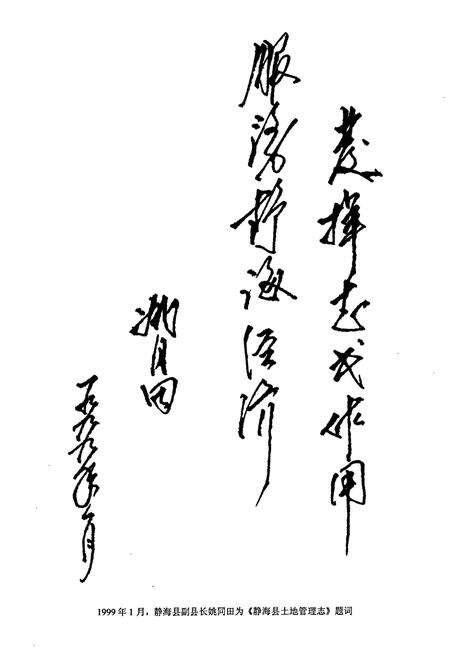 发挥志书作用
服务静海经济
姚同田
一九九九年一月
1999年1月，静海县副县长姚同田为《静海县土地管理志》题词